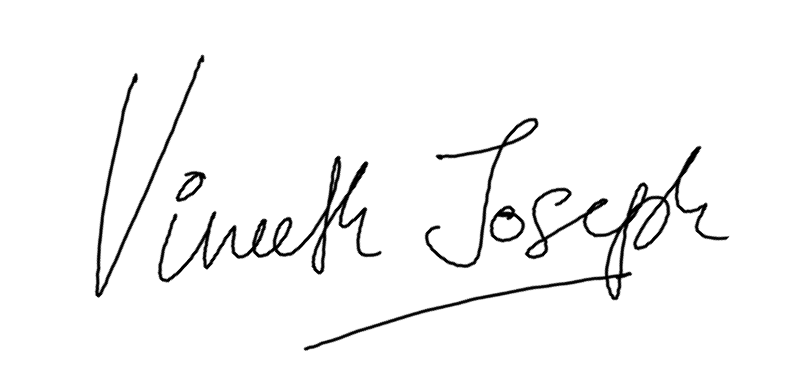 Vineeth Joseph